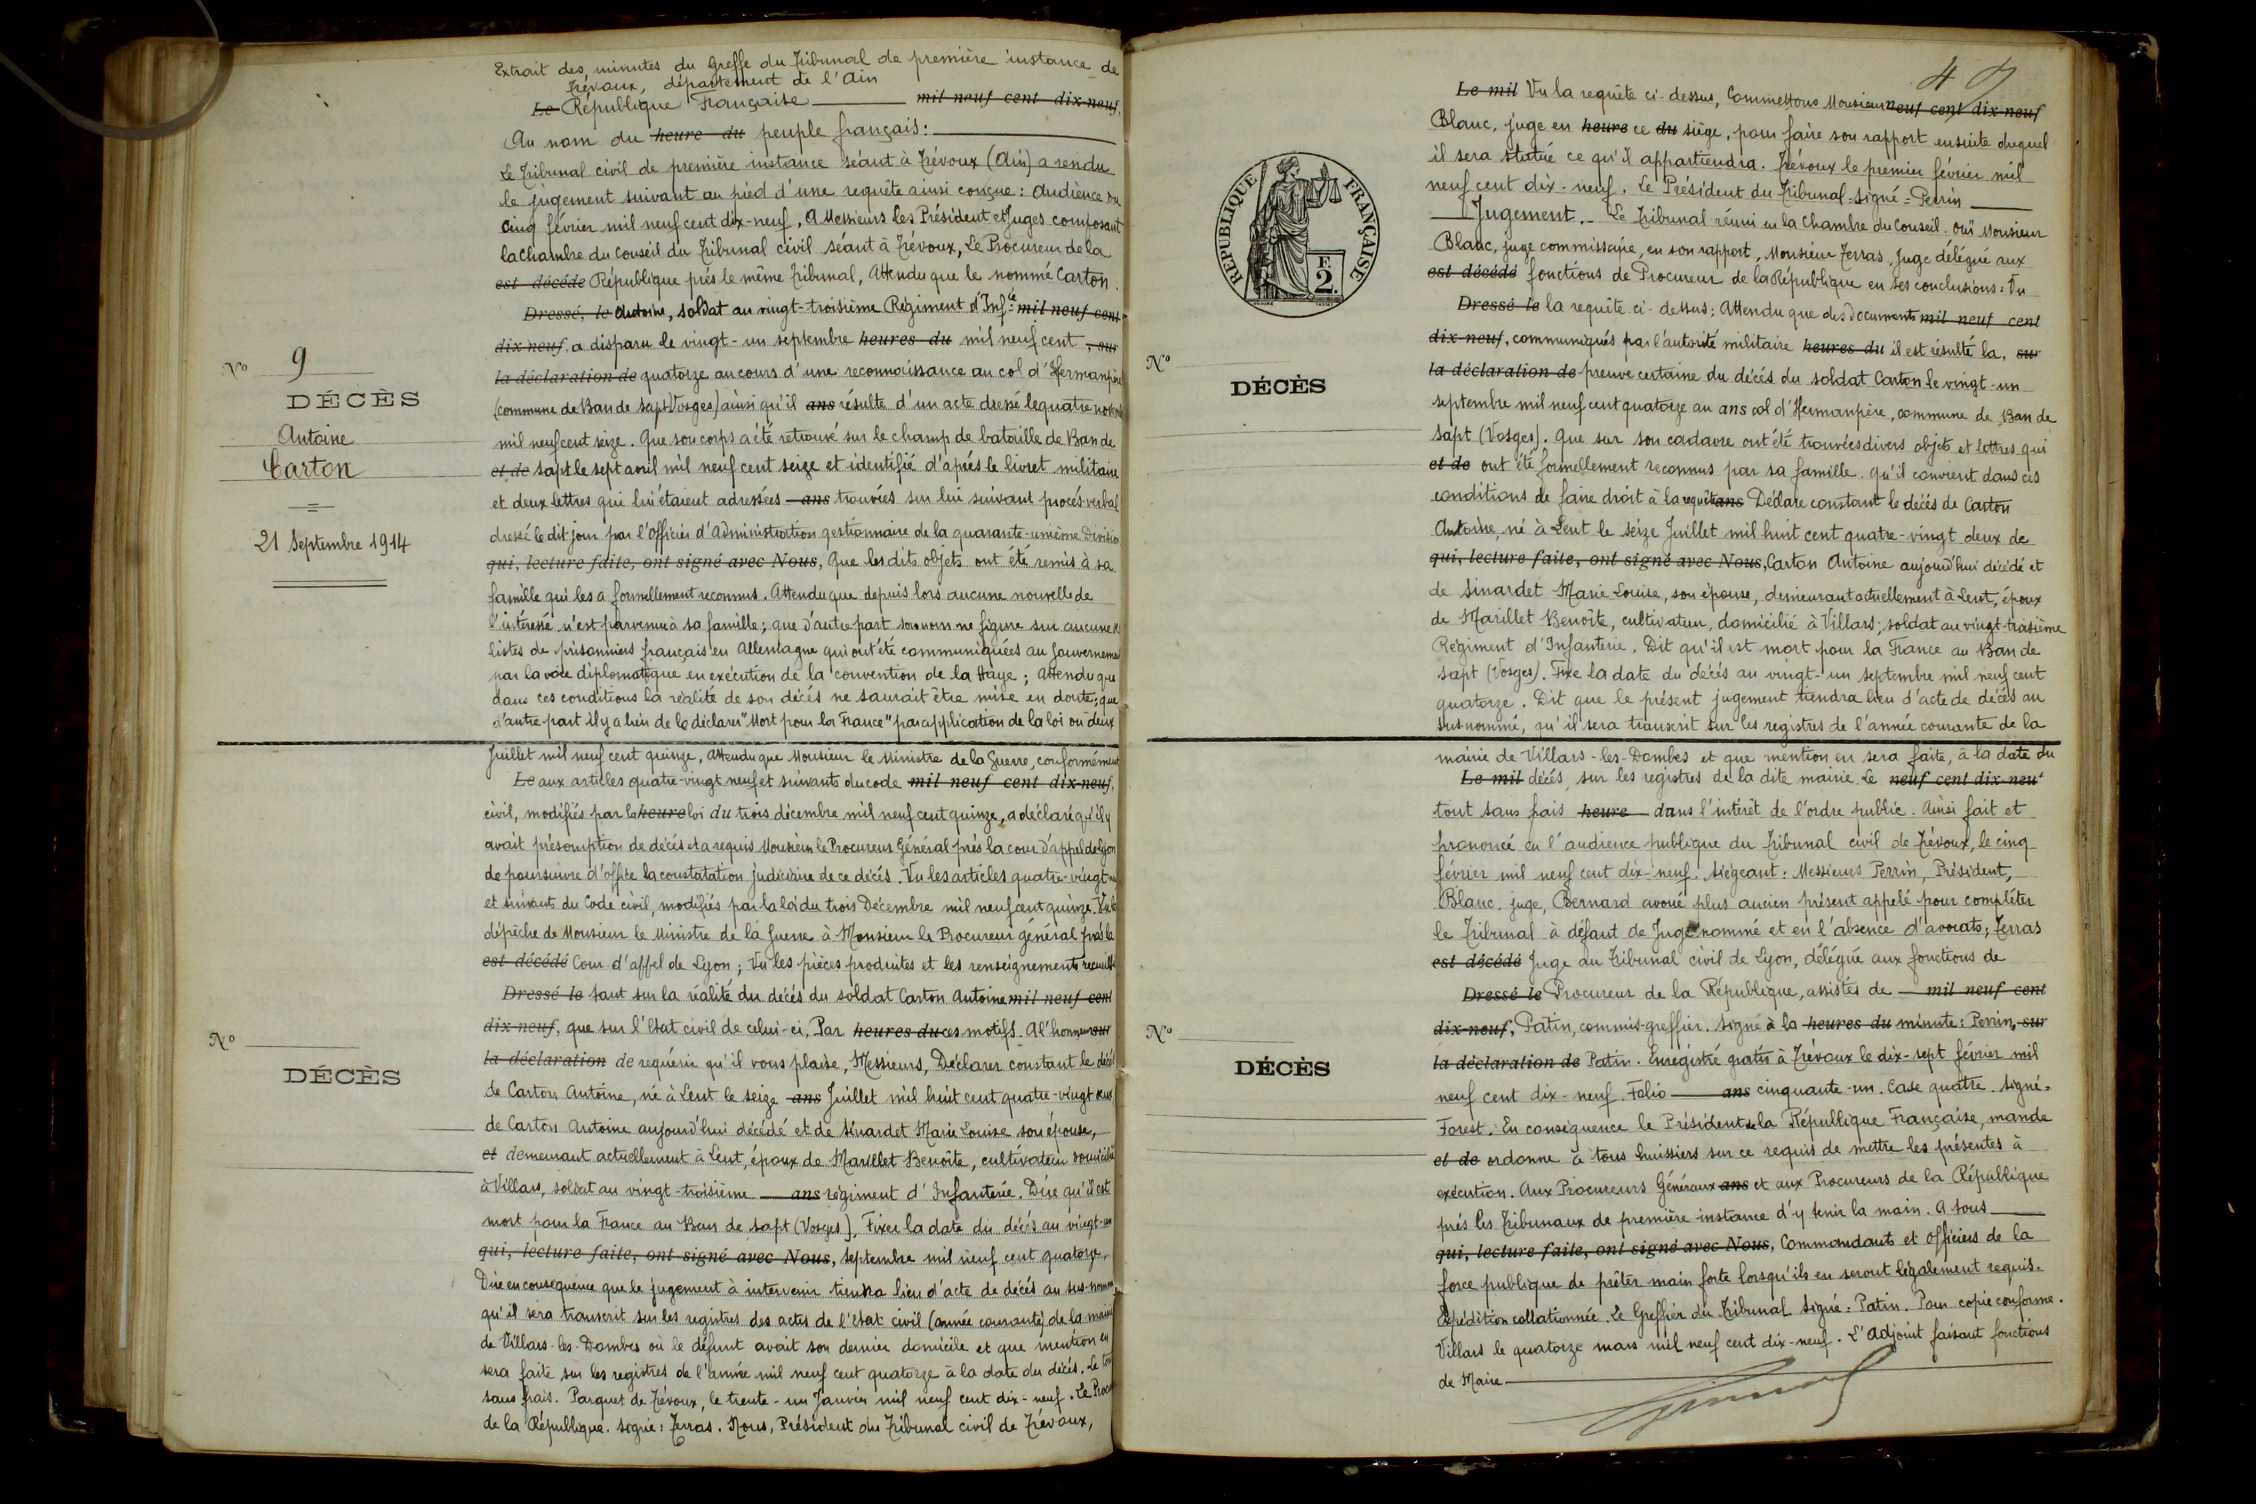 Extrait des minutes du Greffe du Tribunal de première instance de
Trévoux, département de l'Ain
Le République Française mil neuf cent dix-neuf,
Au nom du heure du peuple français:
Le Tribunal civil de première instance séant à Trévoux (Ain) a rendu
le jugement suivant au pied d'une requête ainsi conçue: Audience du
cinq février mil neuf cent dix-neuf, A Messieurs les Président et Juges composant
la Chambre du Conseil du Tribunal civil séant à Trévoux, Le Procureur de la
est décédé République près le même Tribunal, Attendu que le nommé Carton
Dressé, le Antoine, soldat au vingt-troisième Régiment d'Inf.ie mil neuf cent
dix neuf, a disparu le vingt-un septembre heures du mil neuf cent, sur
la déclaration de quatorze au cours d'une reconnaissance au col d'Hermanpère
(commune de Ban de Sapt Vosges) ainsi qu'il ans résulte d'un acte dressé le quatre
mil neuf cent seize. Que son corps a été retrouvé sur le champ de bataille de Ban de
et de sapt le sept avril mil neuf cent seize et identifié d'après le livret militaire
et deux lettres qui lui étaient adressées ans trouvées sur lui suivant procès-verbal
dressé le dit jour par l'Officier d'Administration gestionnaire de la quarante-unième Divisio
qui, lecture faite, ont signé avec Nous, Que les dits objets ont été remis à sa
famille qui les a formellement reconnus. Attendu que depuis lors aucune nouvelle de
l'intéressé n'est parvenue à sa famille; que d'autre part son nom ne figure sur aucune
listes de prisonniers français en Allemagne qui ont été communiquées au Gouverneme
par la voie diplomatique en exécution de la convention de la Haye; Attendu que
dans ces conditions la réalité de son décès ne saurait être mise en doute; que
d'autre part il y a lieu de le déclarer "Mort pour la France" par application de la loi du deux
N° 9
DÉCÈS
Antoine
Carton
21 Septembre 1914
Juillet mil neuf cent quinze, Attendu que Monsieur le Ministre de la Guerre, conformément
Le aux articles quatre-vingt neuf et suivants du code mil neuf cent dix-neuf,
civil, modifiés par la heure loi du trois décembre mil neuf cent quinze, a déclaré qu'il y
avait présomption de décès et a requis Monsieur le Procureur Général près la cour d'appel de Lyon
de poursuivre d'office la constatation judiciaire de ce décès. Vu les articles quatre-vingt
et suivants du Code civil, modifiés par la loi du trois Décembre mil neuf cent quinze. Vu la
dépêche de Monsieur le Ministre de la Guerre à Monsieur le Procureur général près la
est décédé Cour d'appel de Lyon; Vu les pièces produites et les renseignements recueillis
Dressé le tant sur la réalité du décès du soldat Carton Antoine mil neuf cent
dix-neuf, que sur l'Etat civil de celui-ci, Par heures du ces motifs. A l'honneur sur
la déclaration de requérir qu'il vous plaise, Messieurs, Déclarer constant le décès
de Carton Antoine, né à Lent le seize ans Juillet mil huit cent quatre-vingt deux
de Carton Antoine aujourd'hui décédé et de Sinardet Marie Louise son épouse,
et demeurant actuellement à Lent, époux de Marillet Benoîte, cultivateur domicilié
à Villars, soldat au vingt-troisième ans régiment d'Infanterie. Dire qu'il est
mort pour la France au Ban de sapt (Vosges), Fixer la date du décès au vingt-un
qui, lecture faite, ont signé avec Nous, septembre mil neuf cent quatorze.
Dire en conséquence que le jugement à intervenir tiendra lieu d'acte de décès au sus-nommé
qu'il sera transcrit sur les registres des actes de l'Etat civil (année courante) de la mairie
de Villars-les-Dombes où le défunt avait son dernier domicile et que mention en
sera faite sur les registres de l'année mil neuf cent quatorze à la date du décès. Le tout
sans frais. Parquet de Trévoux, le trente-un Janvier mil neuf cent dix-neuf. Le Procu
de la République. signé: Terras. Nous, Président du Tribunal civil de Trévoux,
N°
DÉCÈS
Le mil Vu la requête ci-dessus, Commettons Monsieur neuf cent dix-neuf
Blanc, juge en heure ce du siège, pour faire son rapport ensuite duquel
il sera statué ce qu'il appartiendra. Trévoux le premier février mil
neuf cent dix-neuf. Le Président du Tribunal signé = Perrin
Jugement. Le Tribunal réuni en la Chambre du Conseil. Ouï Monsieur
Blanc, juge commissaire, en son rapport, Monsieur Terras, Juge délégué aux
est décédé fonctions de Procureur de la République en ses conclusions: Vu
Dressé le la requête ci-dessus; Attendu que des documents mil neuf cent
dix-neuf, communiqués par l'autorité militaire heures du il est résulté la, sur
la déclaration de preuve certaine du décès du soldat Carton le vingt-un
septembre mil neuf cent quatorze au ans col d'Hermanpère, commune de Ban de
Sapt (Vosges). Que sur son cadavre ont été trouvées divers objets et lettres qui
et de ont été formellement reconnus par sa famille. Qu'il convient dans ces
conditions de faire droit à la requête ans Déclare constant le décès de Carton
Antoine né à Lent le seize Juillet mil huit cent quatre-vingt deux de
qui, lecture faite, ont signé avec Nous, Carton Antoine aujourd'hui décédé et
de Sinardet Marie Louise, son épouse, demeurant actuellement à Lent, époux
de Marillet Benoîte, cultivateur, domicilié à Villars; soldat au vingt-troisième
Régiment d'Infanterie. Dit qu'il est mort pour la France au Ban de
sapt (Vosges). Fixe la date du décès au vingt-un septembre mil neuf cent
quatorze. Dit que le présent jugement tiendra lieu d'acte de décès au
susnommé, qu'il sera transcrit sur les registres de l'année courante de la
RÉPUBLIQUE FRANÇAISE
F.
2.
N°
DÉCÈS
mairie de Villars-les-Dombes et que mention en sera faite, à la date du
Le mil décès, sur les registres de la dite mairie. Le neuf cent dix-neuf
tout sans frais heure dans l'intérêt de l'ordre public. Ainsi fait et
prononcé en l'audience publique du Tribunal civil de Trévoux, le cinq
février mil neuf cent dix-neuf. siégeant: Messieurs Perrin, Président,
Blanc, juge, Bernard avoué plus ancien présent appelé pour compléter
le Tribunal à défaut de Juge nommé et en l'absence d'avocats; Terras
est décédé Juge au Tribunal civil de Lyon, délégué aux fonctions de
Dressé le Procureur de la République, assistés de mil neuf cent
dix-neuf, Patin, commis-greffier. signé à la heures du minute: Perrin, sur
la déclaration de Patin. Enregistré gratis à Trévoux le dix-sept février mil
neuf cent dix-neuf. Folio ans cinquante-un. Case quatre. signé =
Forest. En conséquence le Président de la République Française, mande
et de ordonne à tous huissiers sur ce requis de mettre les présentes à
exécution. Aux Procureurs Généraux ans et aux Procureurs de la République
près les Tribunaux de première instance d'y tenir la main. A tous
qui, lecture faite, ont signé avec Nous, Commandants et Officiers de la
force publique de prêter main forte lorsqu'ils en seront légalement requis.
Expédition collationnée. Le Greffier du Tribunal signé: Patin. Pour copie conforme.
Villars le quatorze mars mil neuf cent dix-neuf. L'Adjoint faisant fonctions
de Maire
N°
DÉCÈS